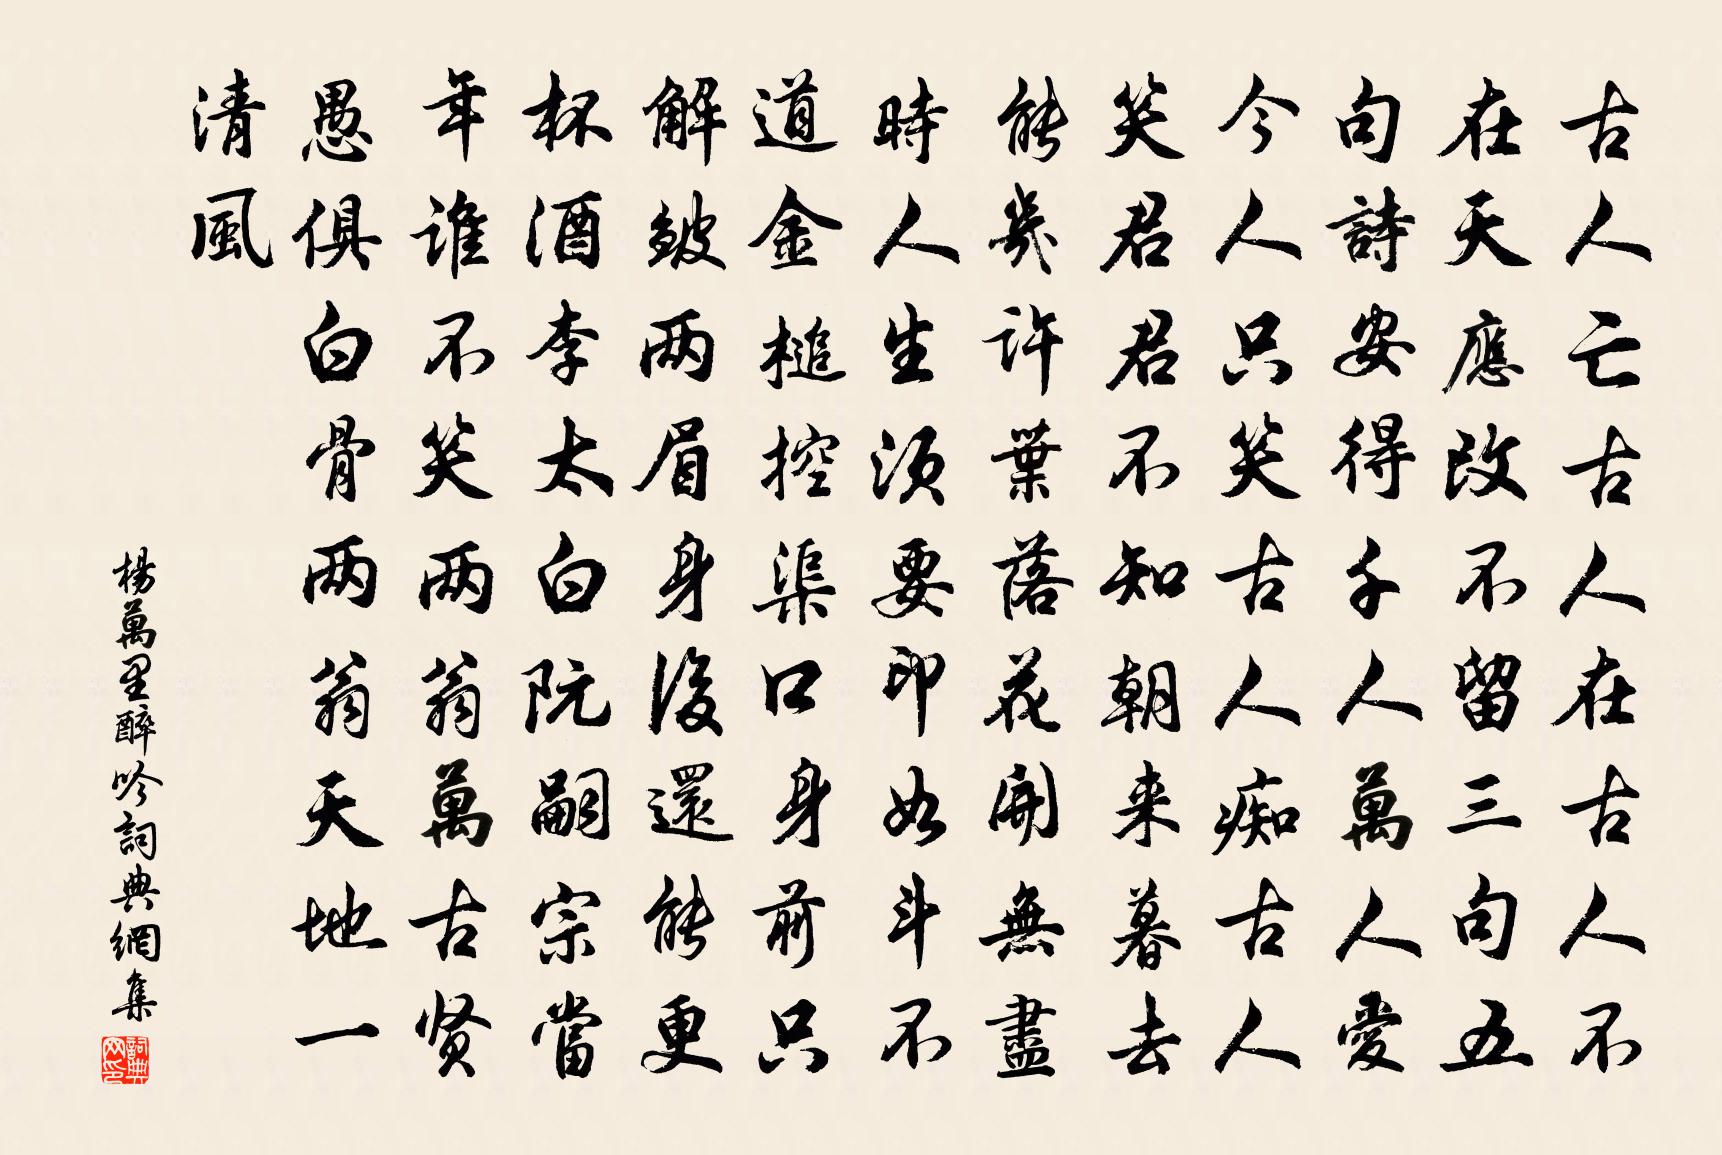 古人亡古人在古人不
在天應改不留三句五
句詩安得千人萬人愛
今人只笑古人痴古人
笑君君不知朝来暮去
能幾許葉落花開無盡
時人生須要印如斗不
道金槌控渠口身前只
解皴两眉身後還能更
杯酒李太白阮嗣宗當
年谁不笑两翁萬古贤
愚俱白骨两翁天地一
清風
楊萬里醉吟詞典網集
詞典网印